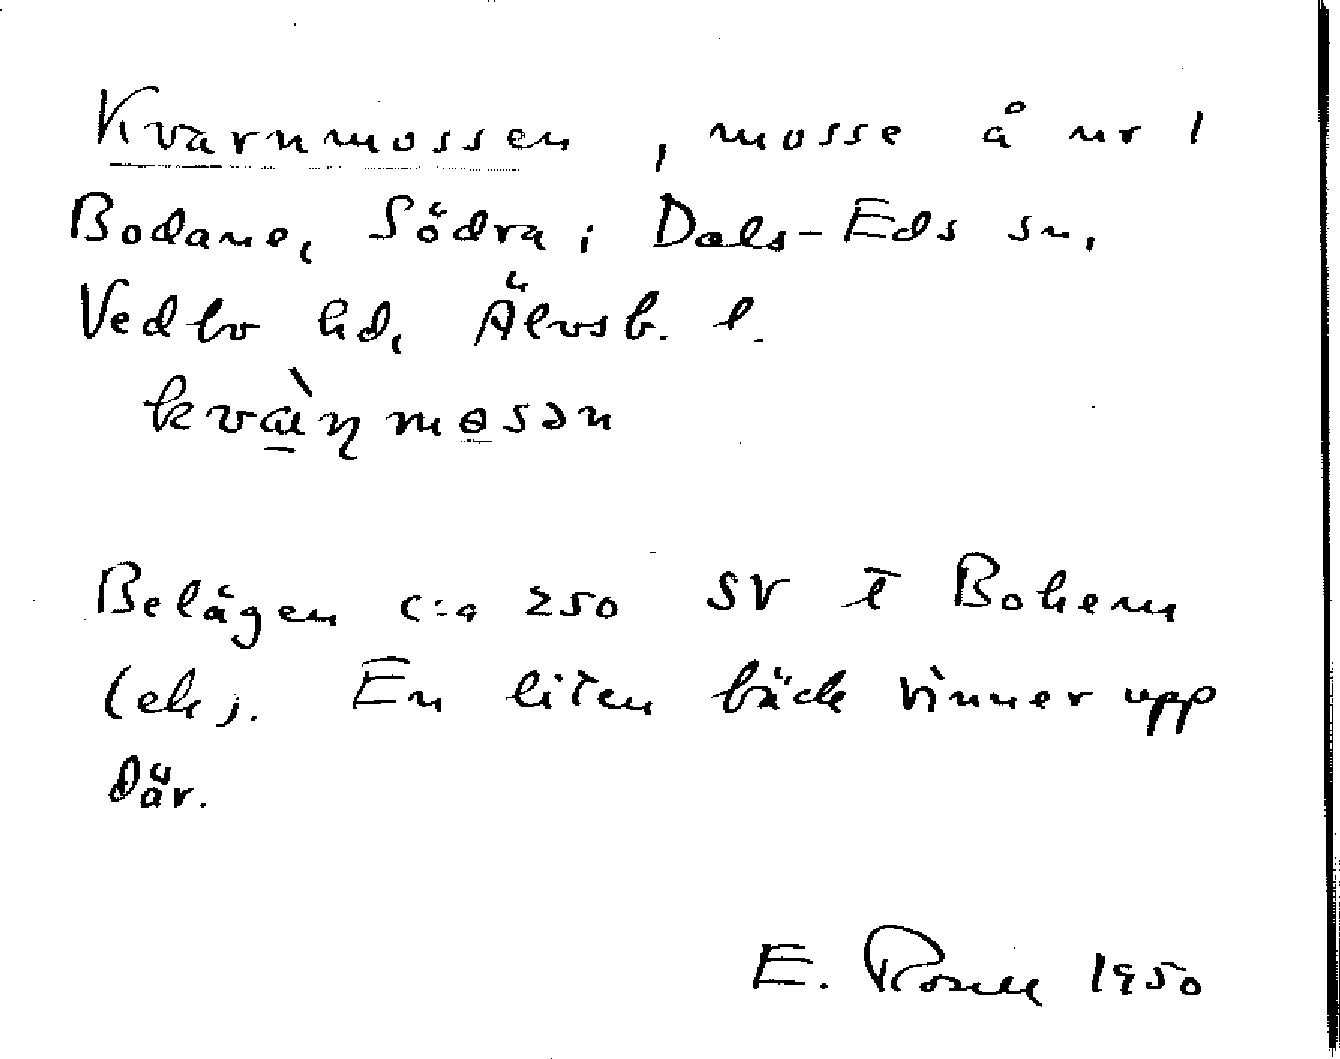 Kvarnmossen, mosse å nr 1
Bodane, Södra i Dals-Eds sn,
Vedbo hd, Älvsb. l.
kvæ̀ɳmɵsən
Belägen c:a 250 SV t Bohem
(ek). En liten bäck rinner upp
där.
E. 1950